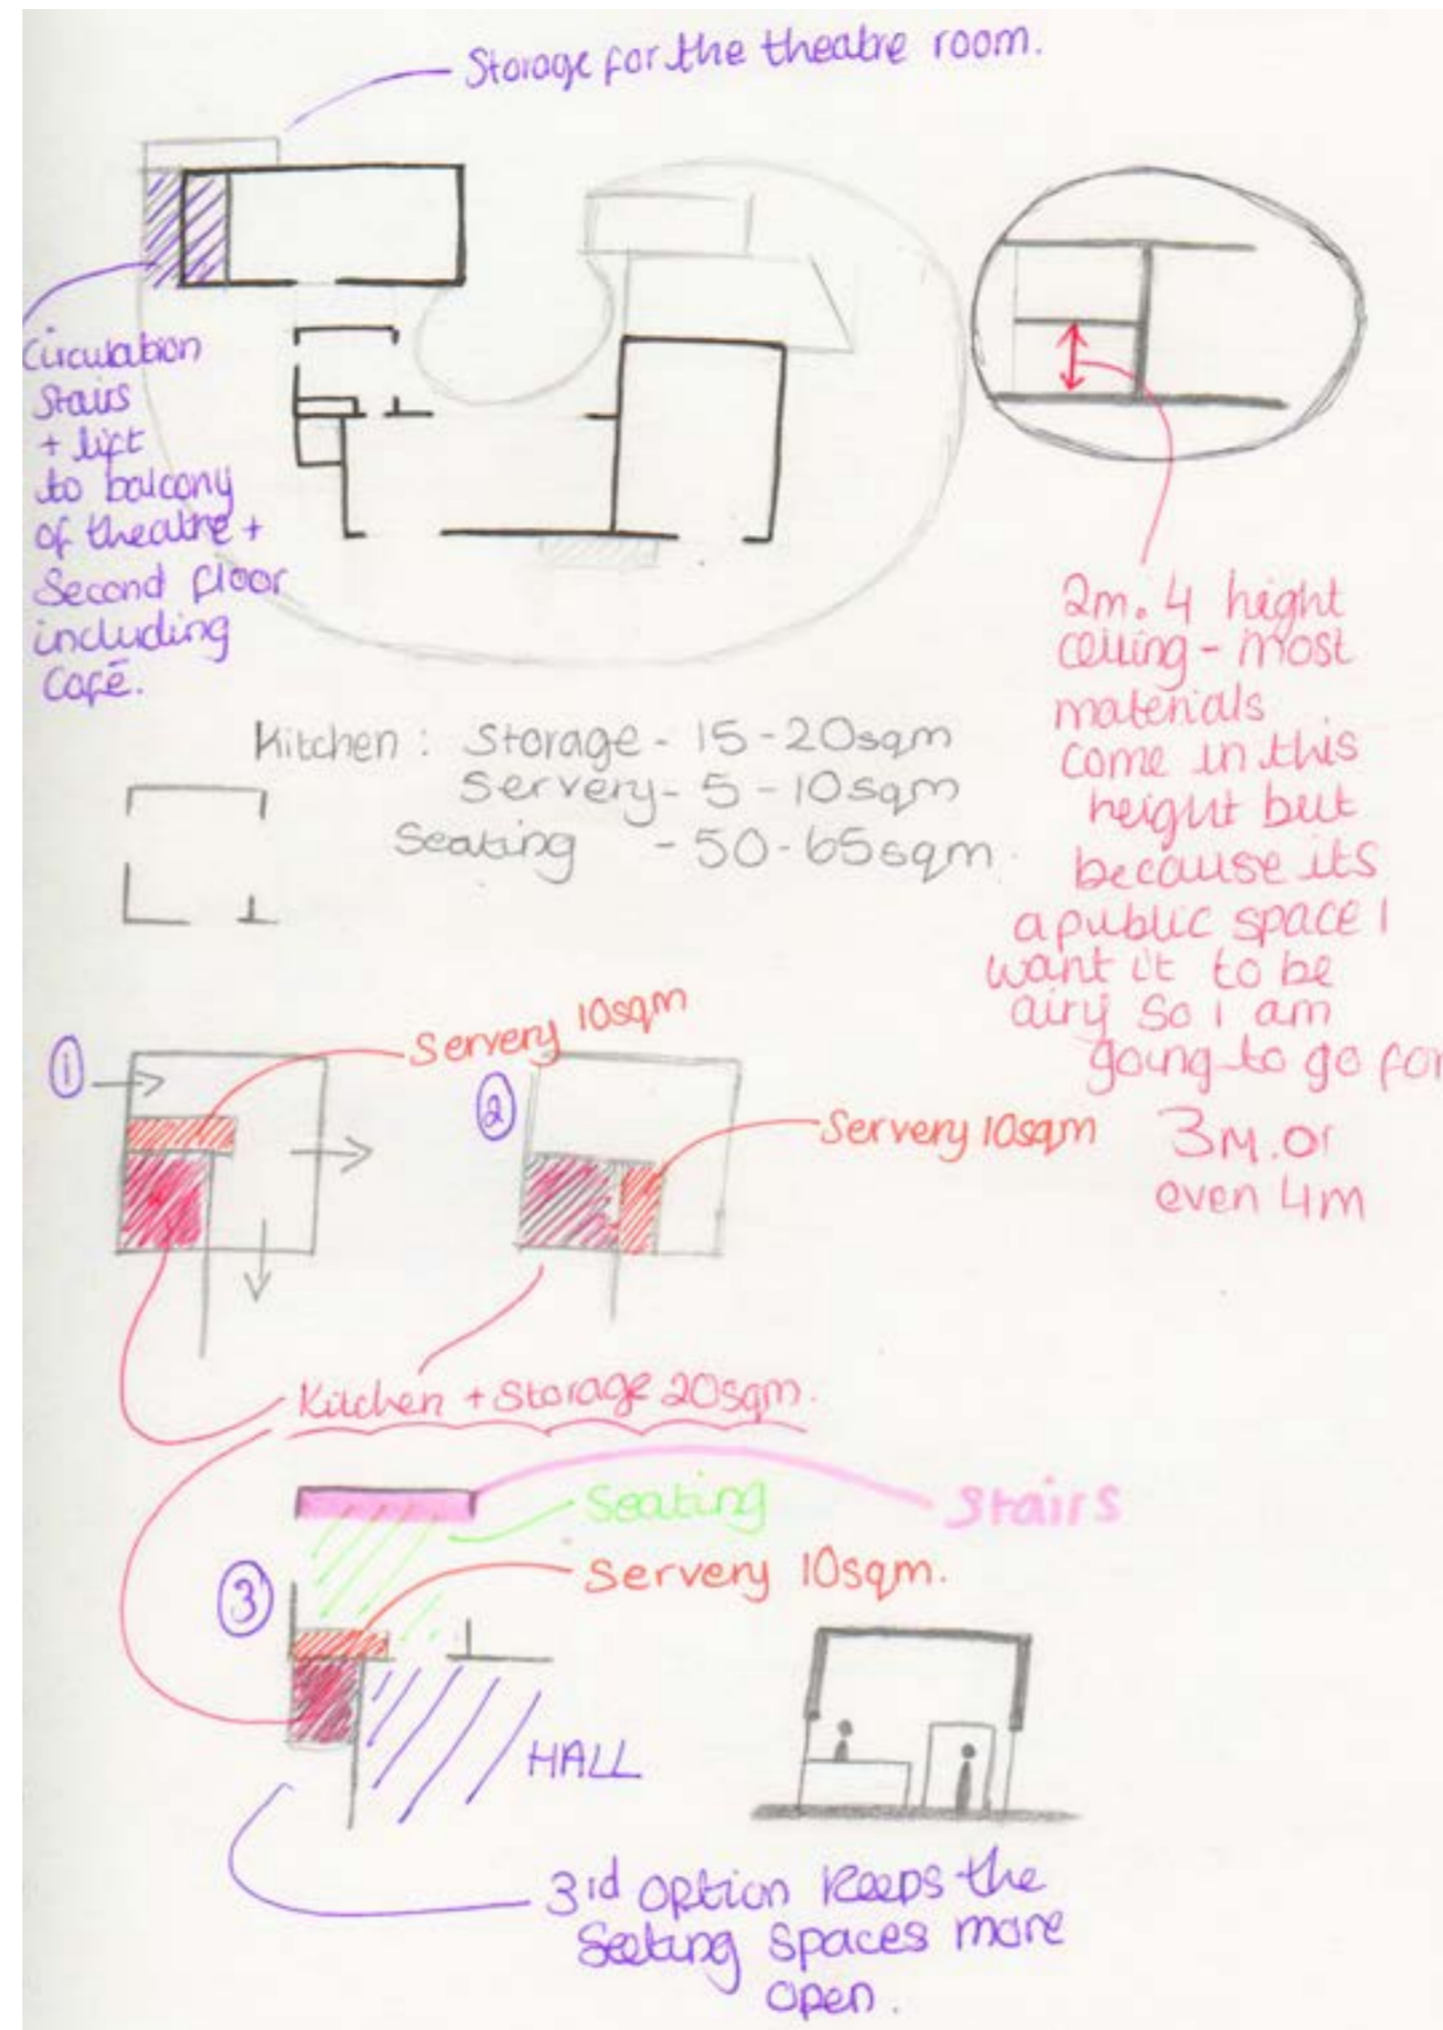 Storage for the theatre room.
Circulation
Stairs
+ lift
to balcony
of theatre +
Second floor
including
Café.
2m.4 height
ceiling - most
materials
come in this
height but
because its
a public space I
want it to be
airy so I am
going to go for
3m. or
even 4m
Kitchen : Storage - 15-20sqm
Servery - 5-10sqm
Seating - 50-65sqm
1
Servery 10sqm
2
Servery 10sqm
Kitchen + Storage 20sqm.
Seating
Stairs
3
Servery 10sqm.
HALL
3rd option keeps the
Seating spaces more
open.